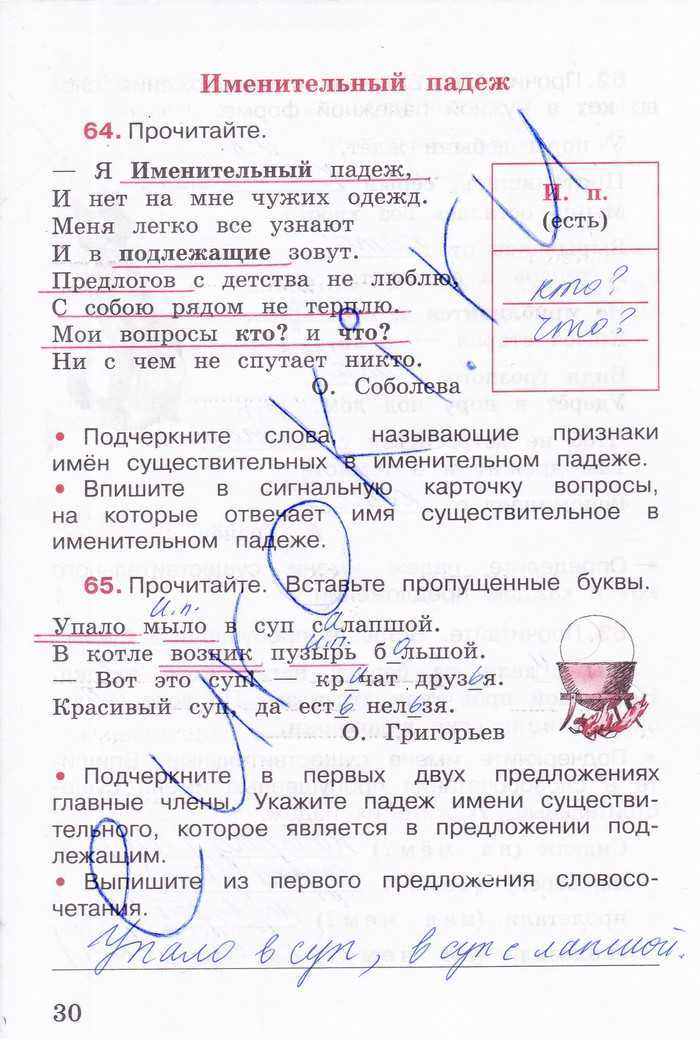 Именительный падеж
64. Прочитайте.
— Я Именительный падеж,
И нет на мне чужих одежд.
Меня легко все узнают
И в подлежащие зовут.
Предлогов с детства не люблю,
С собою рядом не терплю.
Мои вопросы кто? и что?
Ни с чем не спутает никто.
О. Соболева
И. п.
(есть)
кто?
что?
• Подчеркните слова, называющие признаки
имён существительных в именительном падеже.
• Впишите в сигнальную карточку вопросы,
на которые отвечает имя существительное в
именительном падеже.
65. Прочитайте. Вставьте пропущенные буквы.
и.п.
Упало мыло в суп с лапшой.
и.п.
В котле возник пузырь большой.
— Вот это суп! — кричат друзья.
Красивый суп, да есть нельзя.
О. Григорьев
• Подчеркните в первых двух предложениях
главные члены. Укажите падеж имени существи-
тельного, которое является в предложении под-
лежащим.
• Выпишите из первого предложения словосо-
четания.
Упало в суп, в суп с лапшой.
30